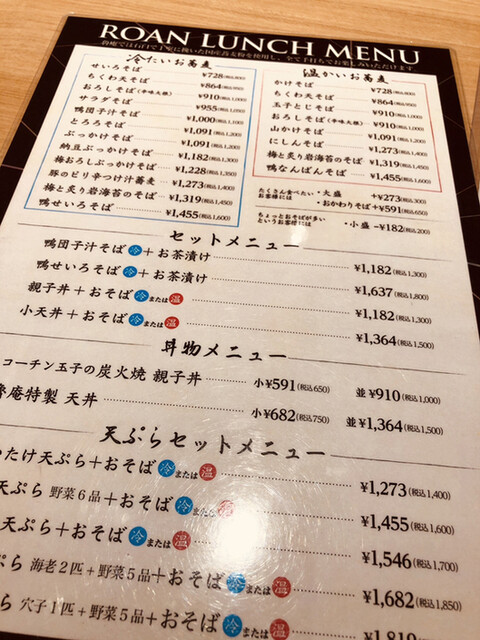 ROAN LUNCH MENU
冷たいお蕎麦
せいろそば ¥728(税込800)
ちくわ天そば ¥864(税込950)
おろしそば(辛味大根) ¥910(税込1,000)
サラダそば ¥955(税込1,050)
鴨団子汁そば ¥1,000(税込1,100)
とろろそば ¥1,091(税込1,200)
ぶっかけそば ¥1,091(税込1,200)
納豆ぶっかけそば ¥1,182(税込1,300)
梅おろしぶっかけそば ¥1,228(税込1,350)
豚のピリ辛つけ汁蕎麦 ¥1,273(税込1,400)
梅と炙り岩海苔のそば ¥1,319(税込1,450)
鴨せいろそば ¥1,455(税込1,600)
温かいお蕎麦
かけそば ¥728(税込800)
ちくわ天そば ¥864(税込950)
玉子とじそば ¥910(税込1,000)
おろしそば(辛味大根) ¥910(税込1,000)
山かけそば ¥1,091(税込1,200)
にしんそば ¥1,273(税込1,400)
梅と炙り岩海苔のそば ¥1,319(税込1,450)
鴨なんばんそば ¥1,455(税込1,600)
たくさん食べたいお客様には
・大盛 +¥273(税込300)
・おかわりそば+¥591(税込650)
ちょっとおそばが多いというお客様には
・小盛 -¥182(税込200)
セットメニュー
鴨団子汁そば冷+お茶漬け ¥1,182(税込1,300)
鴨せいろそば冷+お茶漬け ¥1,637(税込1,800)
親子丼+おそば冷または温 ¥1,182(税込1,300)
小天丼+おそば冷または温 ¥1,364(税込1,500)
丼物メニュー
コーチン玉子の炭火焼 親子丼 小¥591(税込650) 並¥910(税込1,000)
庵特製 天丼 小¥682(税込750) 並¥1,364(税込1,500)
天ぷらセットメニュー
たけ天ぷら+おそば冷または温 ¥1,273(税込1,400)
天ぷら 野菜6品+おそば冷または温 ¥1,455(税込1,600)
天ぷら+おそば冷または温 ¥1,546(税込1,700)
ぷら 海老2匹+野菜5品+おそば冷または温 ¥1,682(税込1,850)
ら 穴子1匹+野菜5品+おそば冷または温